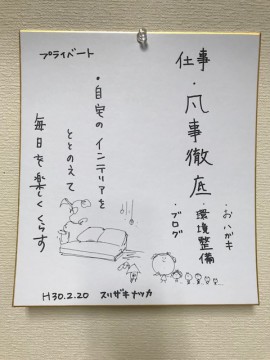 仕事
・凡事徹底
・おハガキ
・環境整備
・ブログ
プライベート
・自宅のインテリアを
ととのえて
毎日を楽しくくらす
H30.2.20